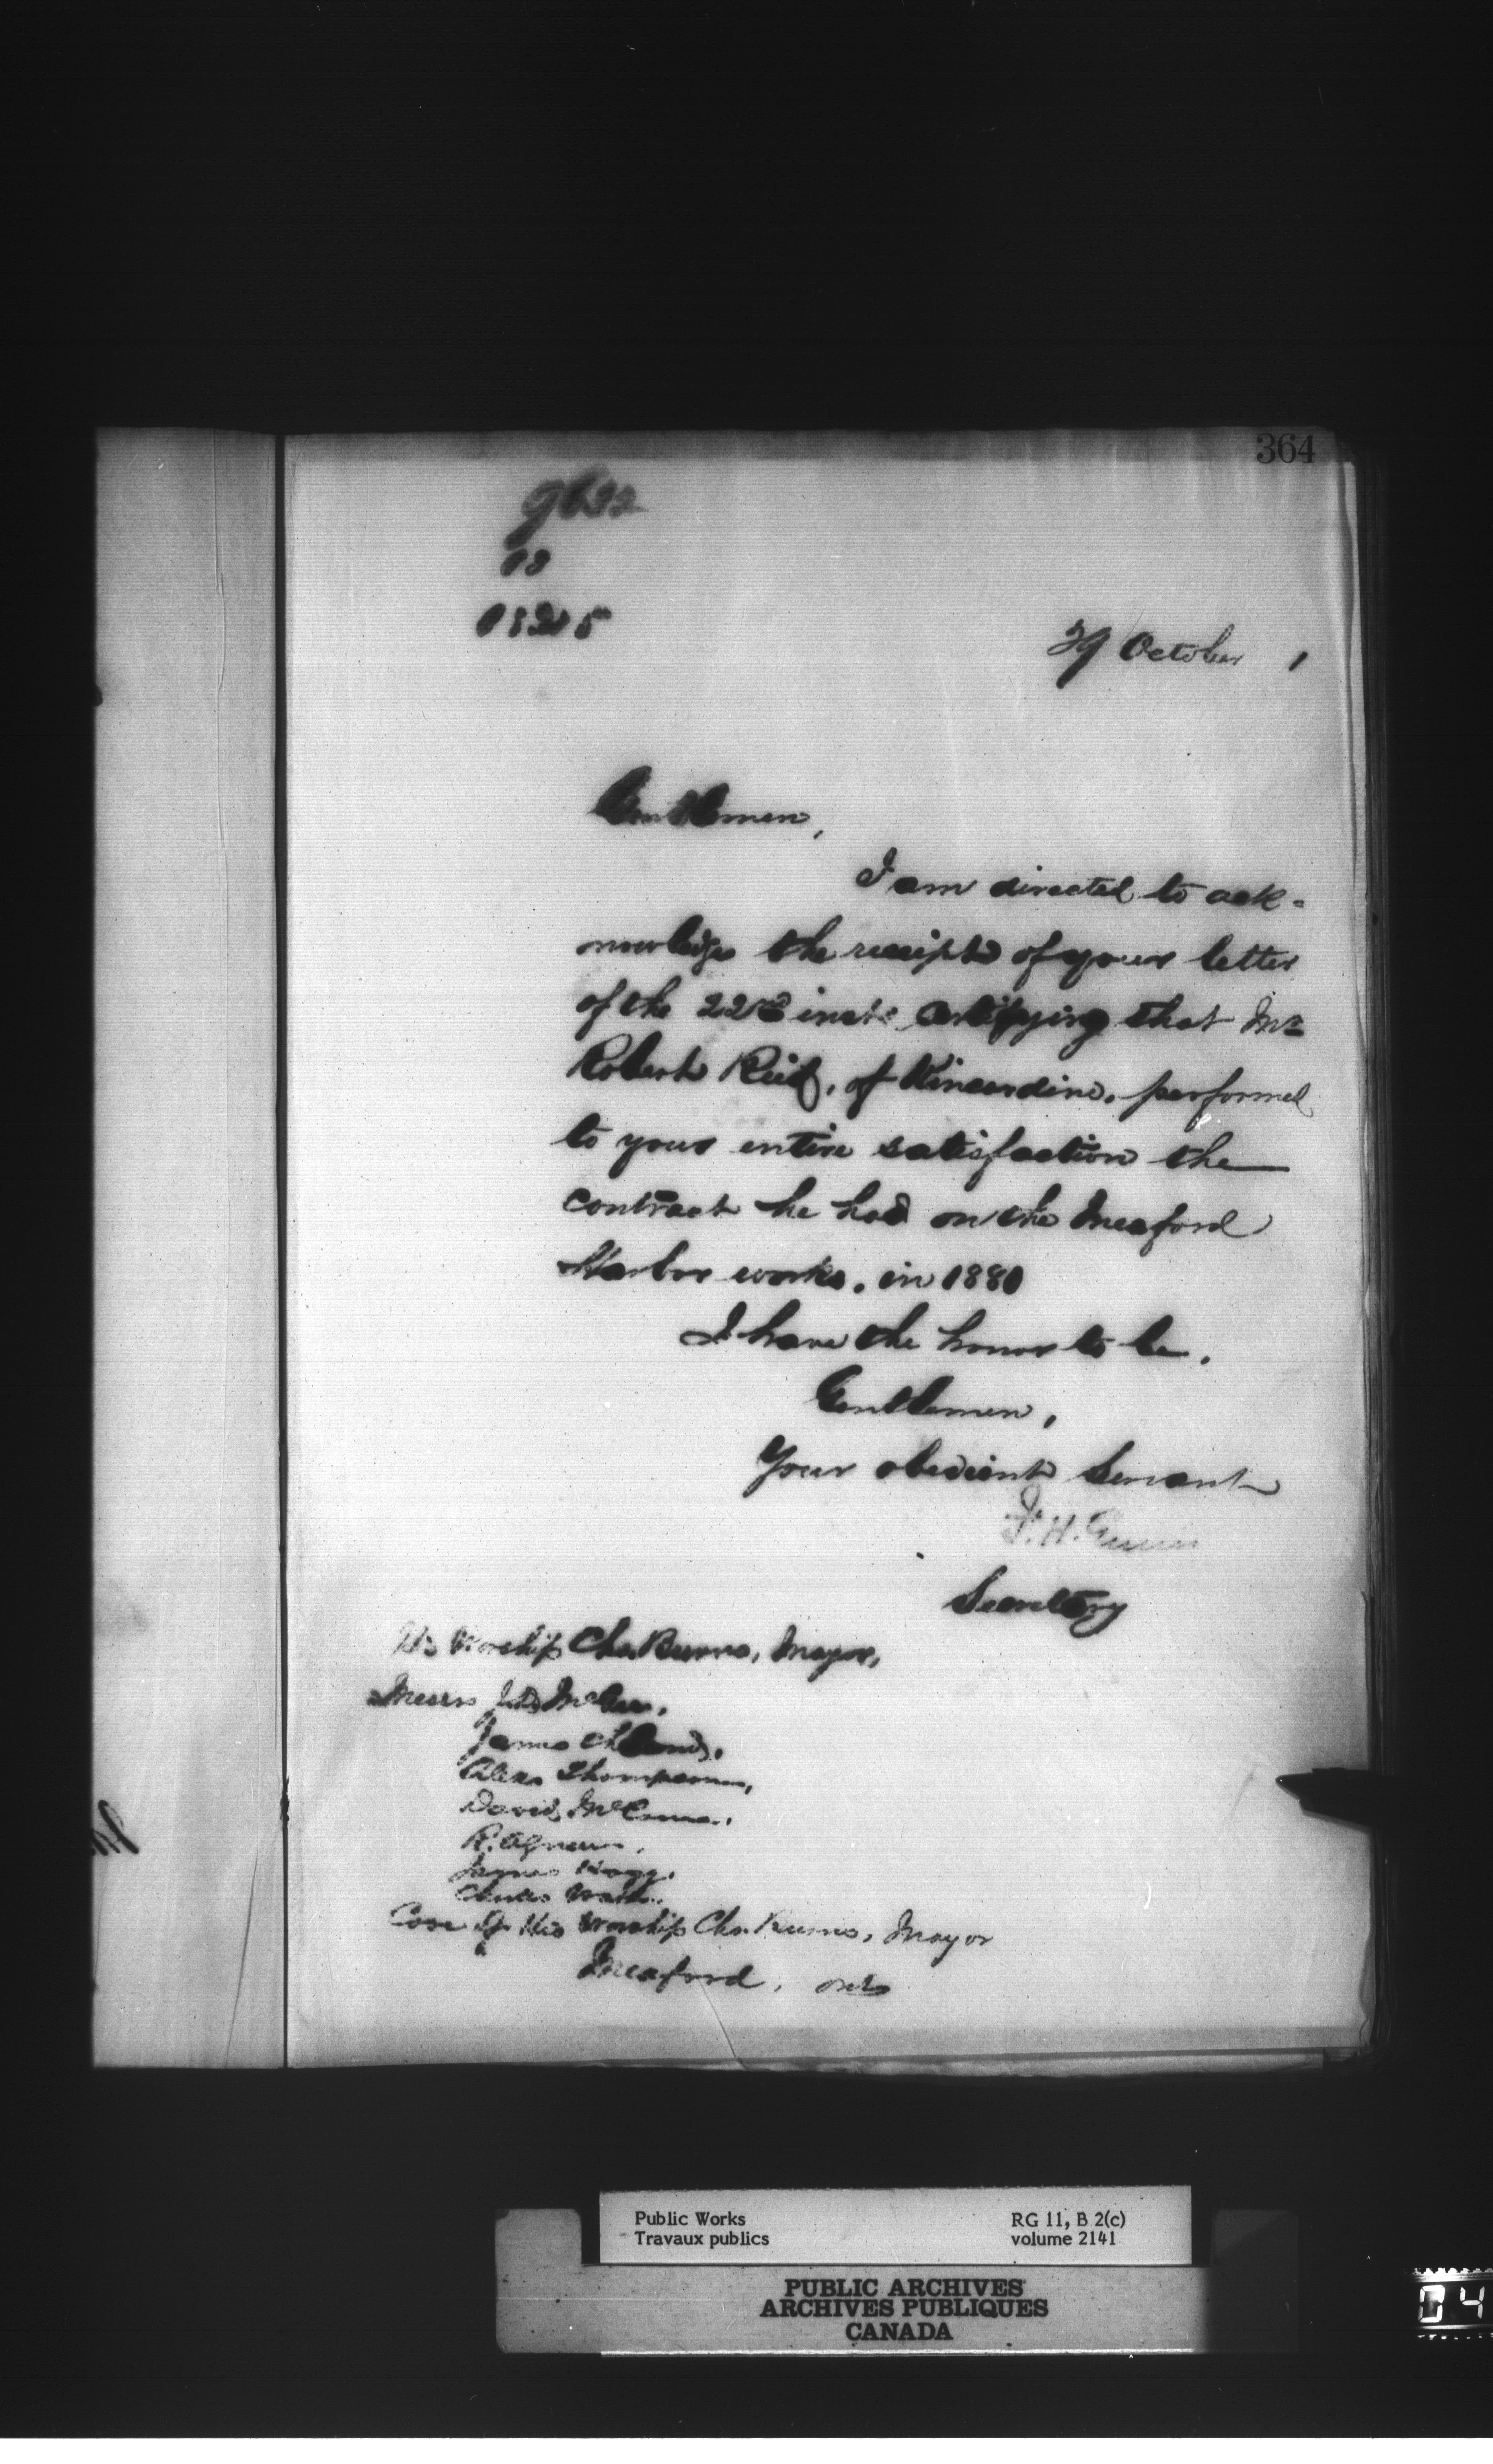 364
13215
29 October 1
Gentlemen,
I am directed to ack-
nowledge the receipt of your letter
of the 22nd inst. certifying that Mr
Robert Reid, of Kincardine, performed
to your entire satisfaction the
contract he had on the Meaford
Harbor works, in 1880
I have the honor to be,
Gentlemen,
Your obedient Servant
F. H. Ennis
Secretary
His Worship Chs. Burns, Mayor,
Messrs
James
Alexr Thompson,
David
R. Agnew,
James Hogg,
Charles
Care of His Worship Chs. Burns, Mayor
Meaford, Ont
Public Works
Travaux publics
RG 11, B 2(c)
volume 2141
PUBLIC ARCHIVES
ARCHIVES PUBLIQUES
CANADA
04